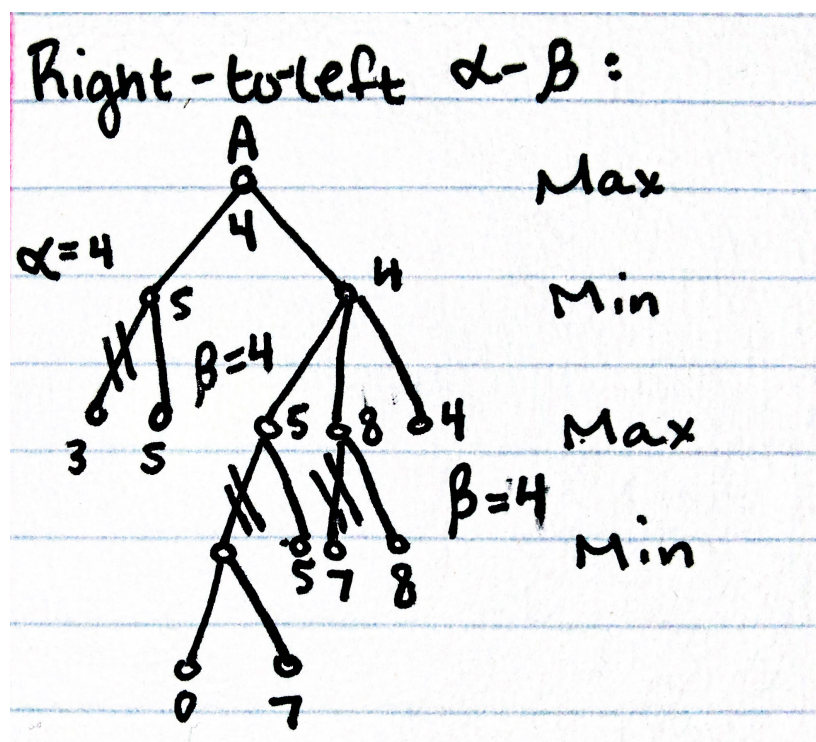 Right-to-left α-β:
A
Max
4
α=4
4
Min
5
β=4
5
8
4
Max
3
5
β=4
5
7
8
Min
0
7